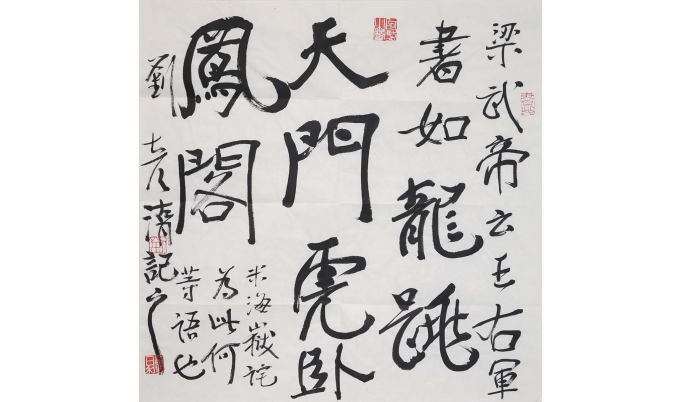 梁武帝云王右軍
書如龍跳
天門虎卧
鳳閣
米海嶽詫
為此何
等語也
劉彥記之